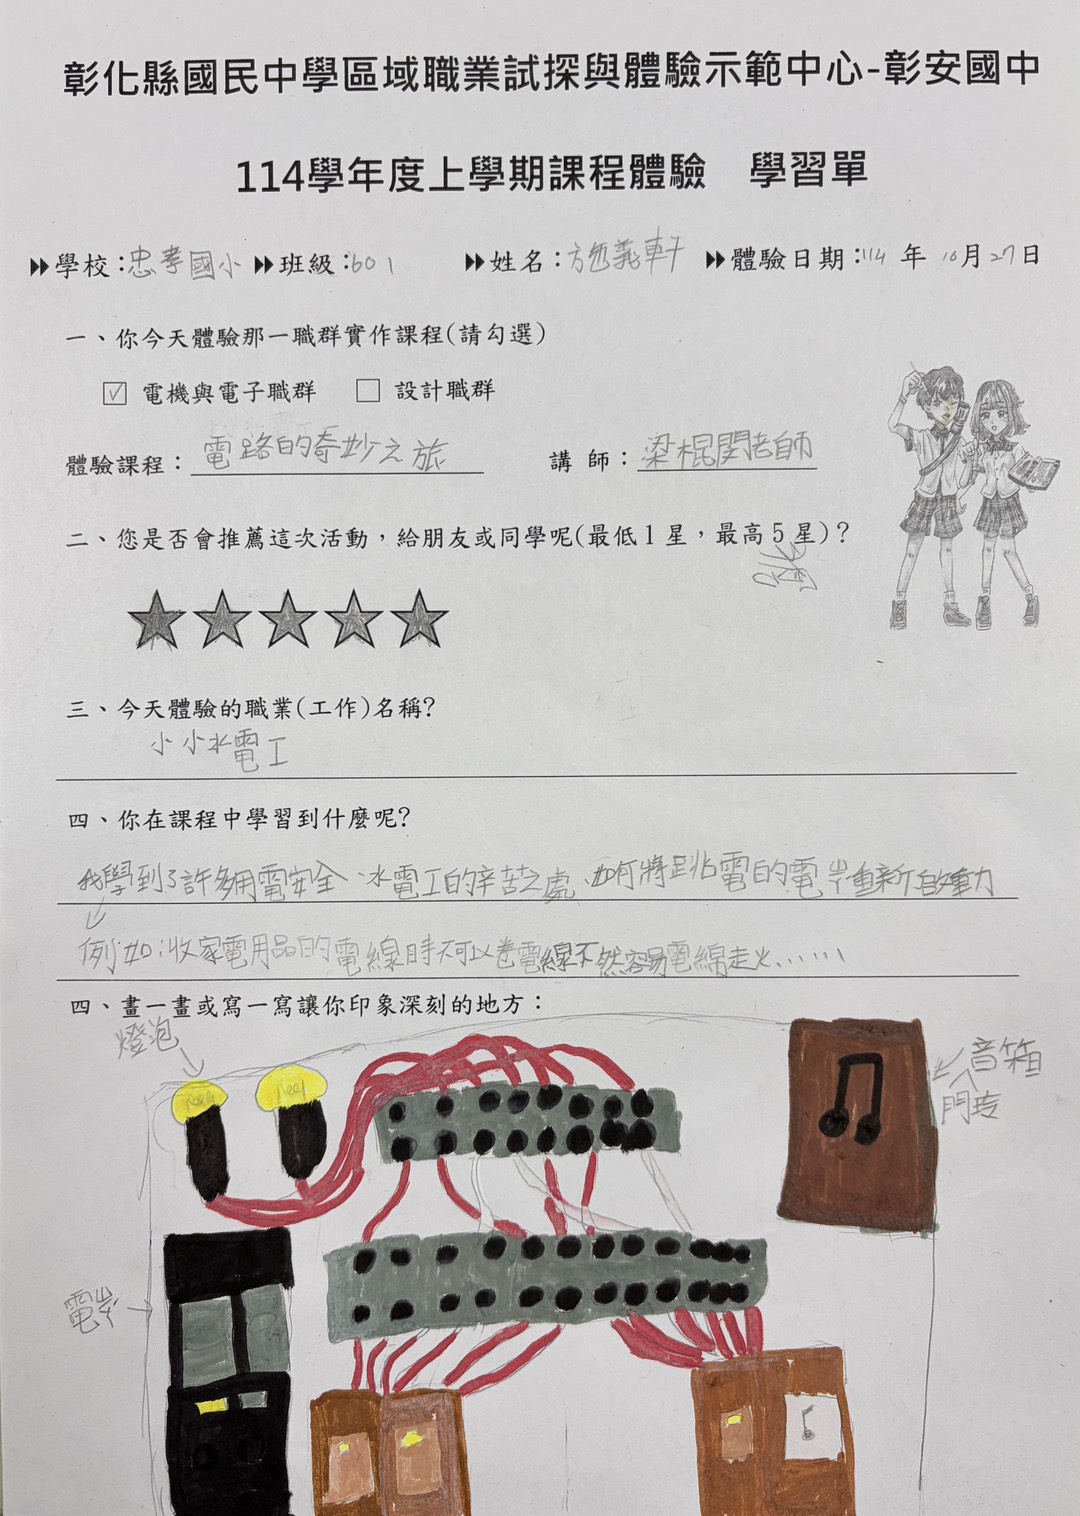 彰化縣國民中學區域職業試探與體驗示範中心-彰安國中
114學年度上學期課程體驗 學習單
學校：忠孝國小 班級：601 姓名：施義軒 體驗日期：114 年 10月27日
一、你今天體驗那一職群實作課程(請勾選)
☑ 電機與電子職群 □ 設計職群
體驗課程：電路的奇妙之旅 講 師：梁棍閔老師
二、您是否會推薦這次活動，給朋友或同學呢(最低1星，最高5星)？
三、今天體驗的職業(工作)名稱?
小小水電工
四、你在課程中學習到什麼呢?
我學到了許多用電安全、水電工的辛苦之處、如何將跳電的電岺重新啟動
例如：收家電用品的電線時不可以卷電線不然容易電線走火……
四、畫一畫或寫一寫讓你印象深刻的地方：
燈泡
音箱
門玲
電岺